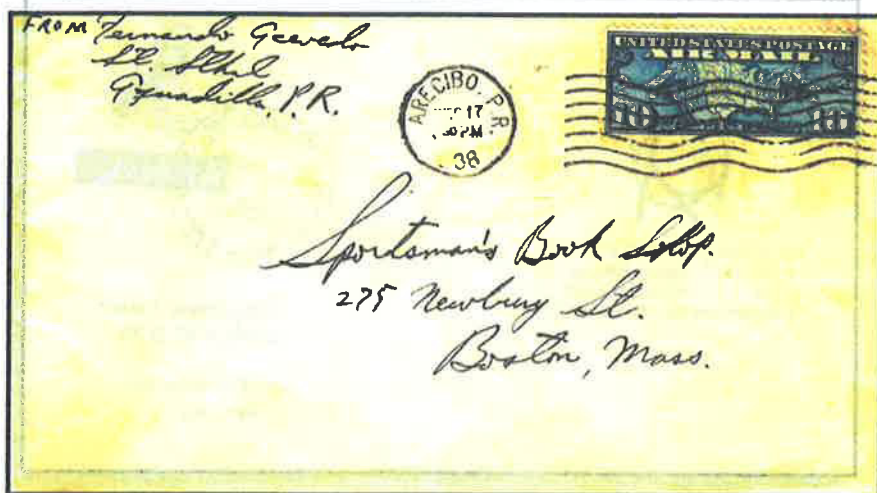 FROM Fernando Acevedo
St. Ethel
Aguadilla, P.R.
ARECIBO, P.R.
17
PM
38
UNITED STATES POSTAGE
AIR MAIL
10 10
Sportsman's Book Shop.
275 Newbury St.
Boston, Mass.